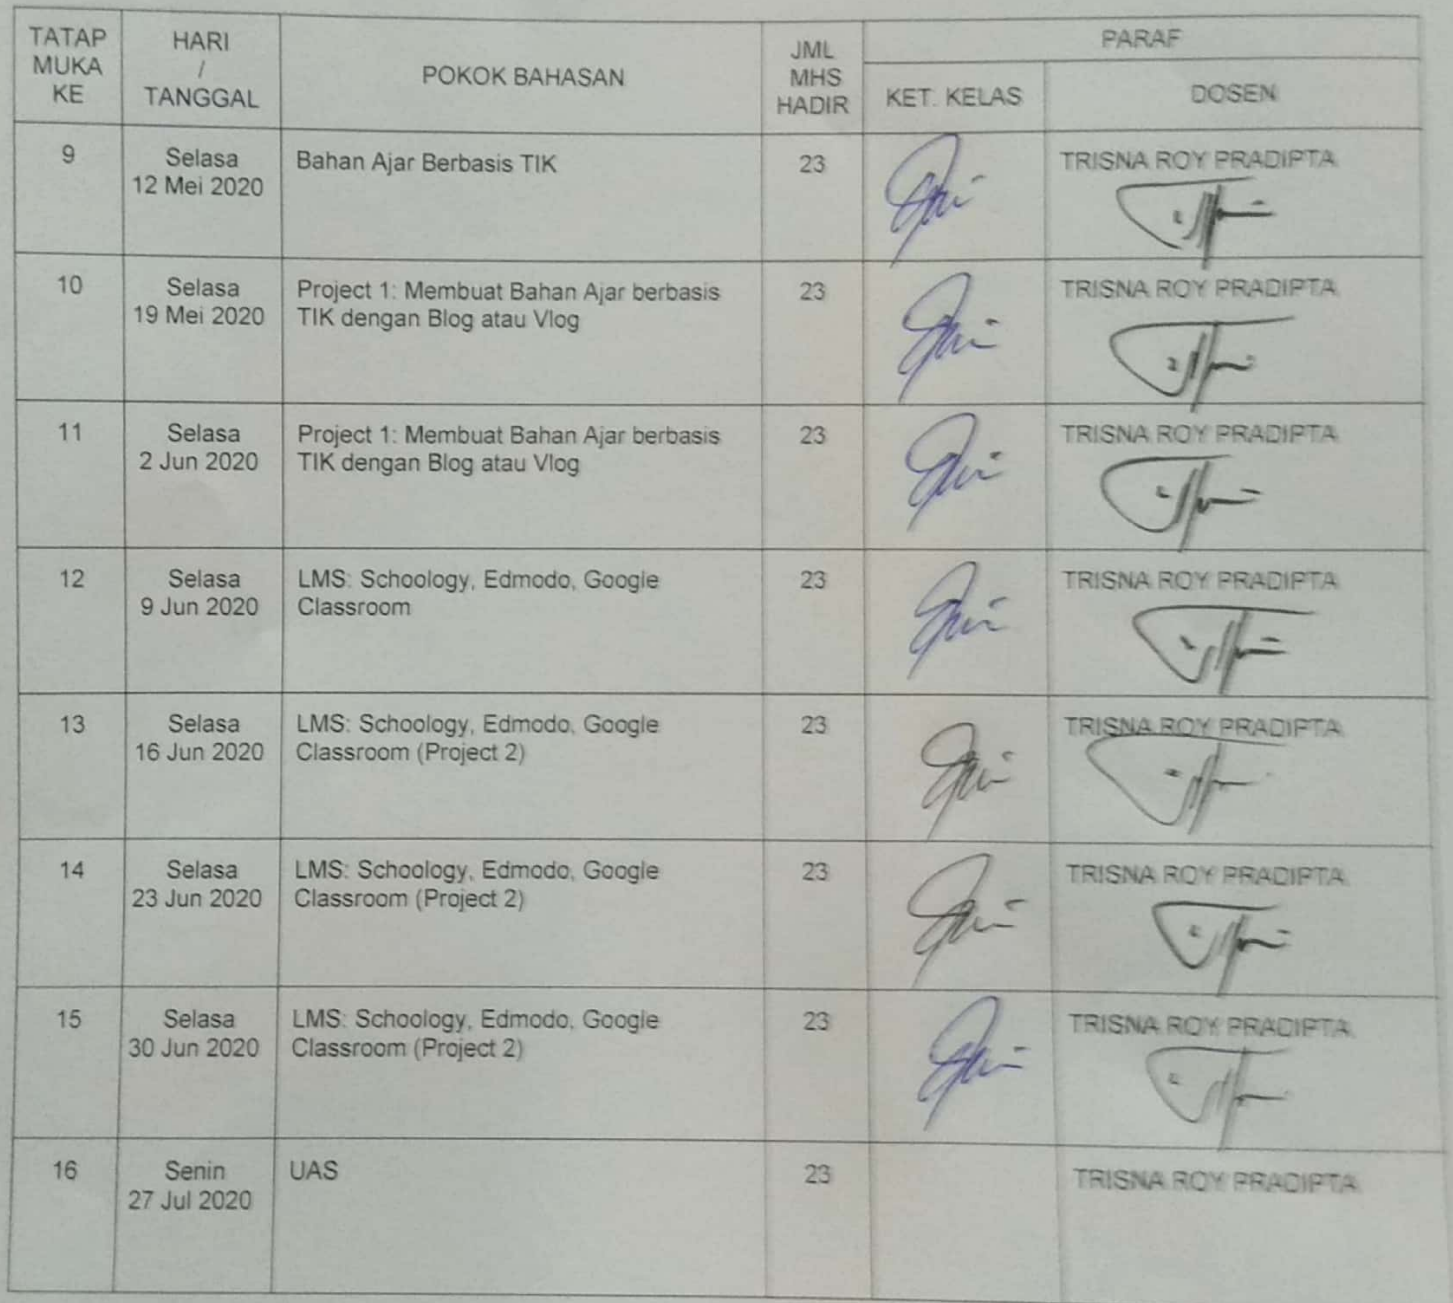 TATAP MUKA KE
HARI / TANGGAL
POKOK BAHASAN
JML MHS HADIR
PARAF
KET. KELAS
DOSEN
9
Selasa
12 Mei 2020
Bahan Ajar Berbasis TIK
23
TRISNA ROY PRADIPTA
10
Selasa
19 Mei 2020
Project 1: Membuat Bahan Ajar berbasis
TIK dengan Blog atau Vlog
23
TRISNA ROY PRADIPTA
11
Selasa
2 Jun 2020
Project 1: Membuat Bahan Ajar berbasis
TIK dengan Blog atau Vlog
23
TRISNA ROY PRADIPTA
12
Selasa
9 Jun 2020
LMS: Schoology, Edmodo, Google
Classroom
23
TRISNA ROY PRADIPTA
13
Selasa
16 Jun 2020
LMS: Schoology, Edmodo, Google
Classroom (Project 2)
23
TRISNA ROY PRADIPTA
14
Selasa
23 Jun 2020
LMS: Schoology, Edmodo, Google
Classroom (Project 2)
23
TRISNA ROY PRADIPTA
15
Selasa
30 Jun 2020
LMS: Schoology, Edmodo, Google
Classroom (Project 2)
23
TRISNA ROY PRADIPTA
16
Senin
27 Jul 2020
UAS
23
TRISNA ROY PRADIPTA